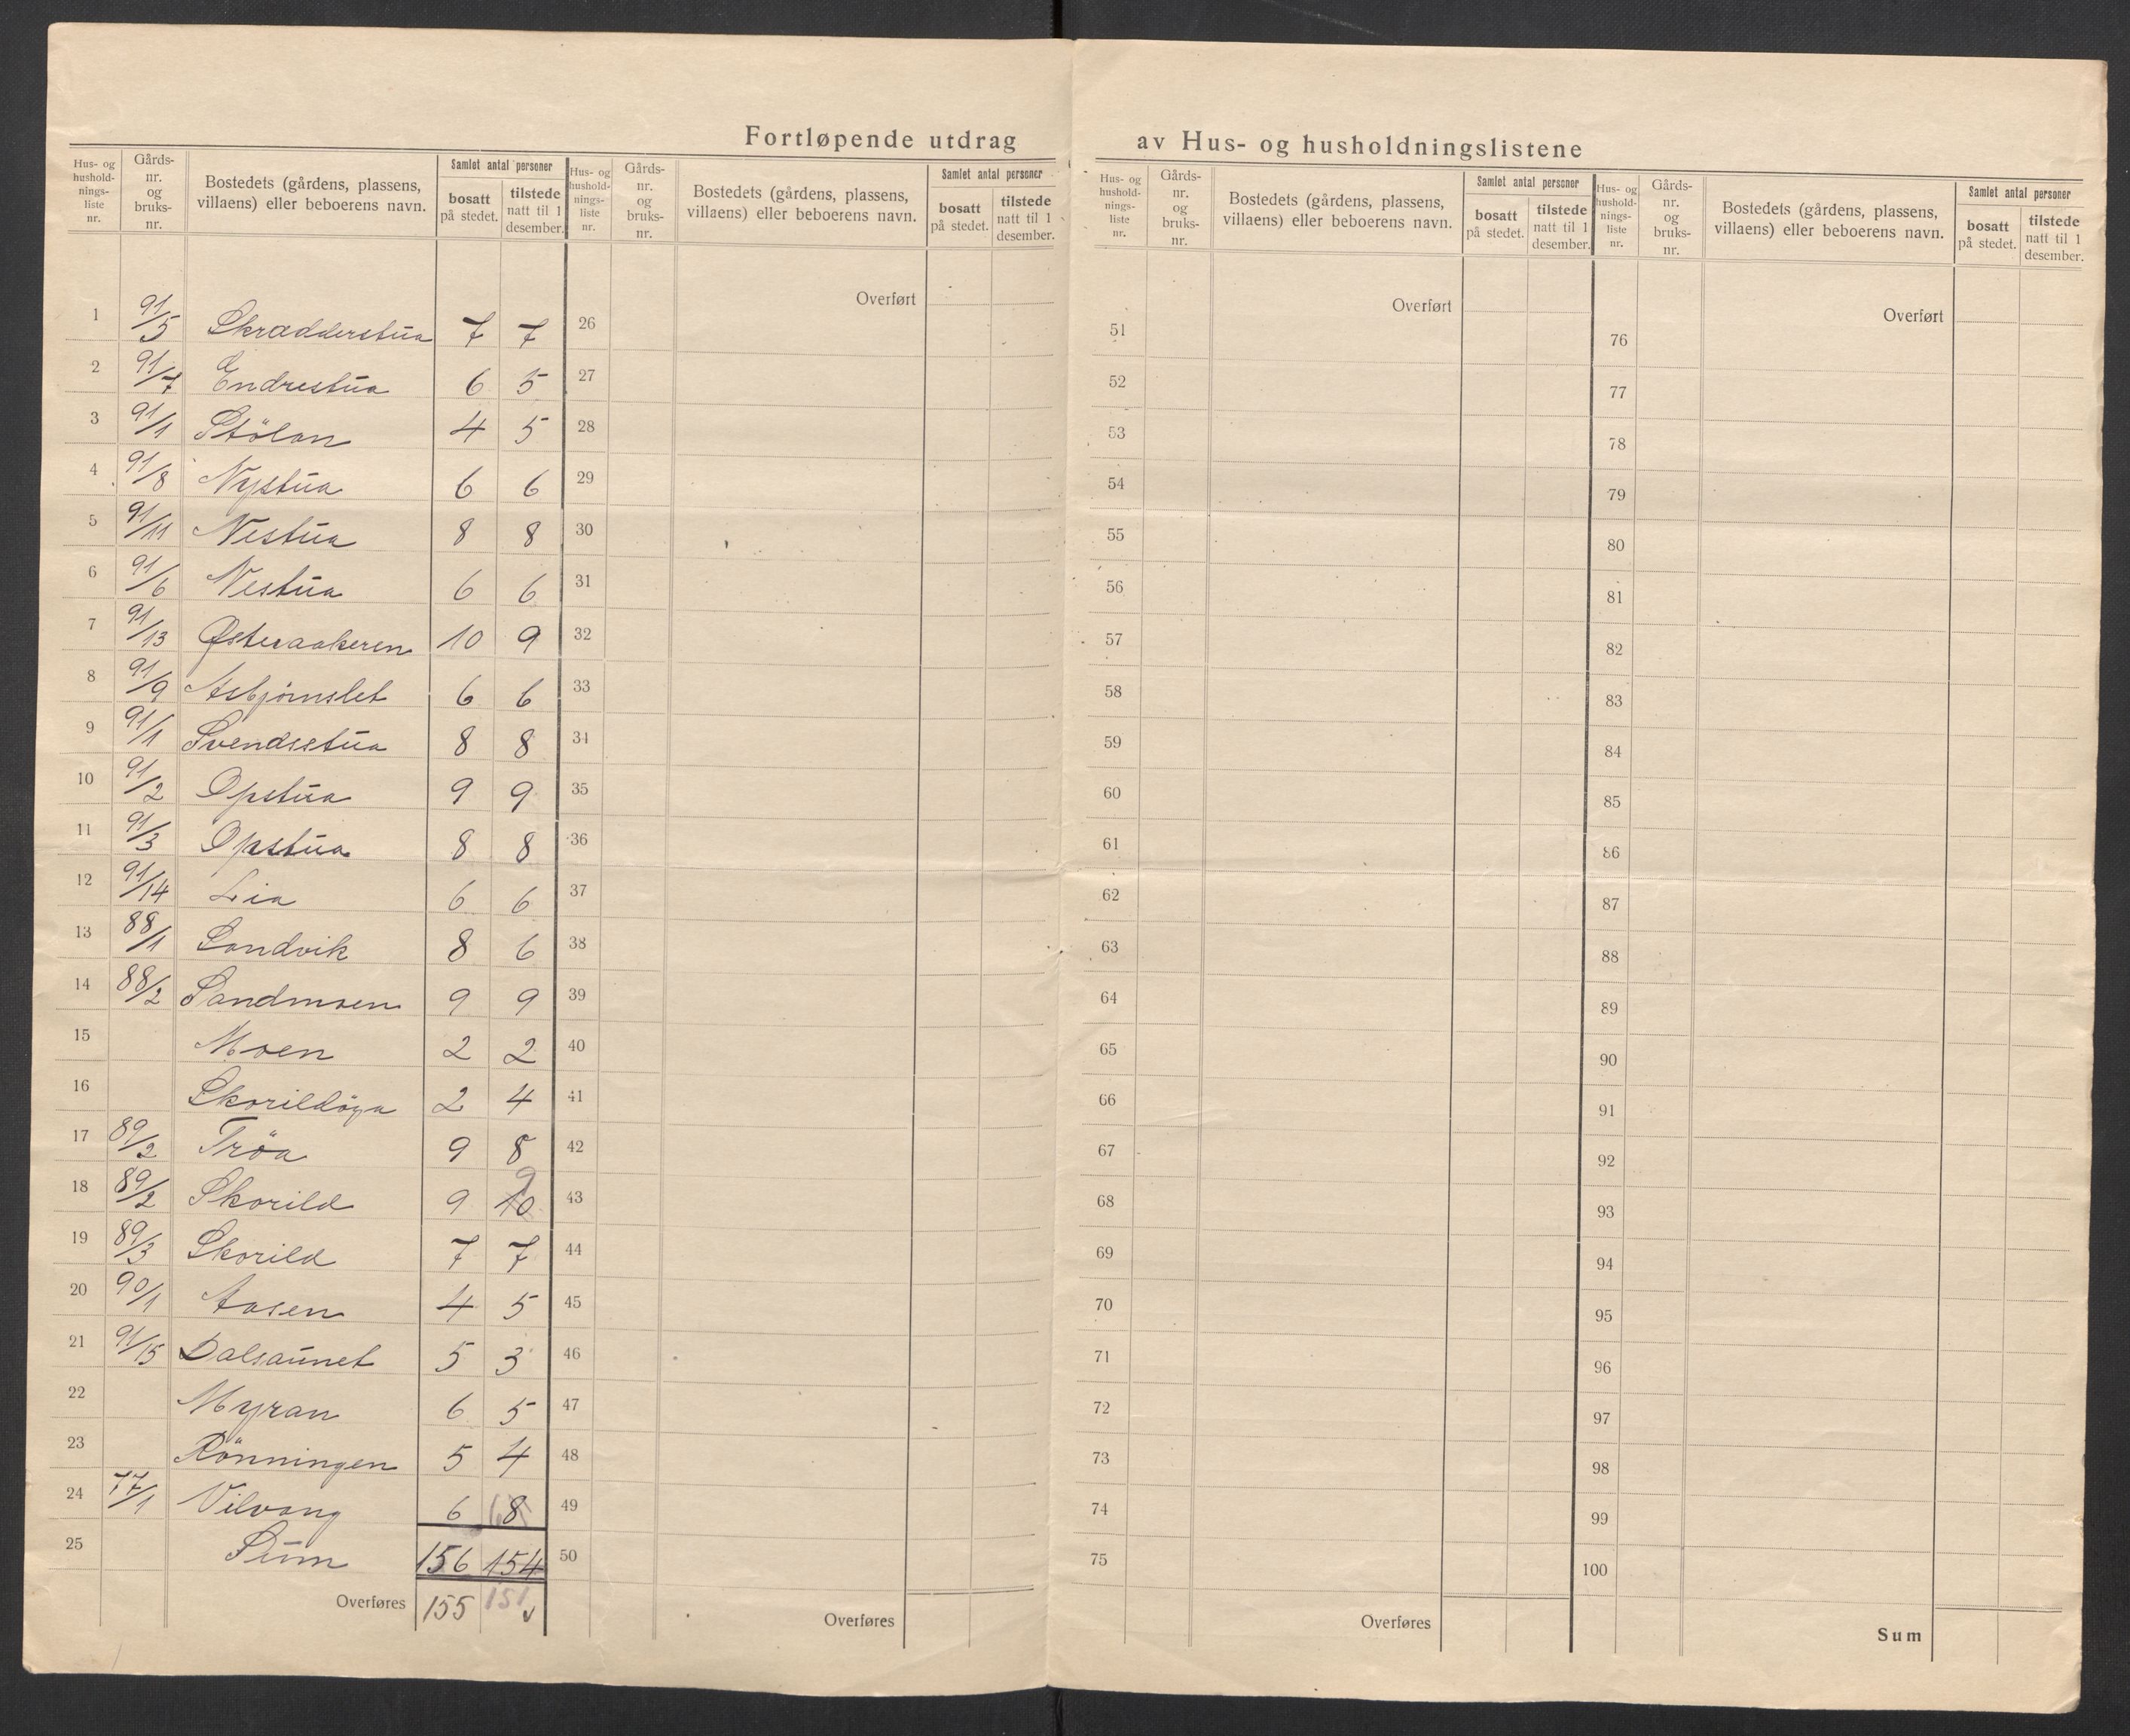 Fortløpende utdrag av Hus- og husholdningslistene
Hus- og hushold-nings-liste nr. | Gårds-nr. og bruks-nr. | Bostedets (gårdens, plassens, villaens) eller beboerens navn. | Samlet antal personer | bosatt på stedet. | tilstede natt til 1 desember.
1 91/5 Skradderstua 7 7
2 91/7 Endrestua 6 5
3 91/1 Stölan 4 5
4 91/8 Nystua 6 6
5 91/11 Nestua 8 8
6 91/6 Nestua 6 6
7 91/13 Østeraakeren 10 9
8 91/9 Asbjörnslet 6 6
9 91/1 Svendsstua 8 8
10 91/2 Opstua 9 9
11 91/3 Opstua 8 8
12 91/14 Lia 6 6
13 88/1 Sandvik 8 6
14 88/2 Sandmoen 9 9
15 Moen 2 2
16 Skorildöya 2 4
17 89/2 Tröa 9 8
18 89/2 Skorild 9 10 9
19 89/3 Skorild 7 7
20 90/1 Aasen 4 5
21 91/15 Dalsaunet 5 3
22 Myran 6 5
23 Rönningen 5 4
24 77/1 Vilvang 6 8
25 Sum 156 154
Overføres 155 151
Hus- og hushold-nings-liste nr. | Gårds-nr. og bruks-nr. | Bostedets (gårdens, plassens, villaens) eller beboerens navn. | Samlet antal personer | bosatt på stedet. | tilstede natt til 1 desember.
Overført
26
27
28
29
30
31
32
33
34
35
36
37
38
39
40
41
42
43
44
45
46
47
48
49
50
Overføres
Hus- og hushold-nings-liste nr. | Gårds-nr. og bruks-nr. | Bostedets (gårdens, plassens, villaens) eller beboerens navn. | Samlet antal personer | bosatt på stedet. | tilstede natt til 1 desember.
Overført
51
52
53
54
55
56
57
58
59
60
61
62
63
64
65
66
67
68
69
70
71
72
73
74
75
Overføres
Hus- og hushold-nings-liste nr. | Gårds-nr. og bruks-nr. | Bostedets (gårdens, plassens, villaens) eller beboerens navn. | Samlet antal personer | bosatt på stedet. | tilstede natt til 1 desember.
Overført
76
77
78
79
80
81
82
83
84
85
86
87
88
89
90
91
92
93
94
95
96
97
98
99
100
Sum